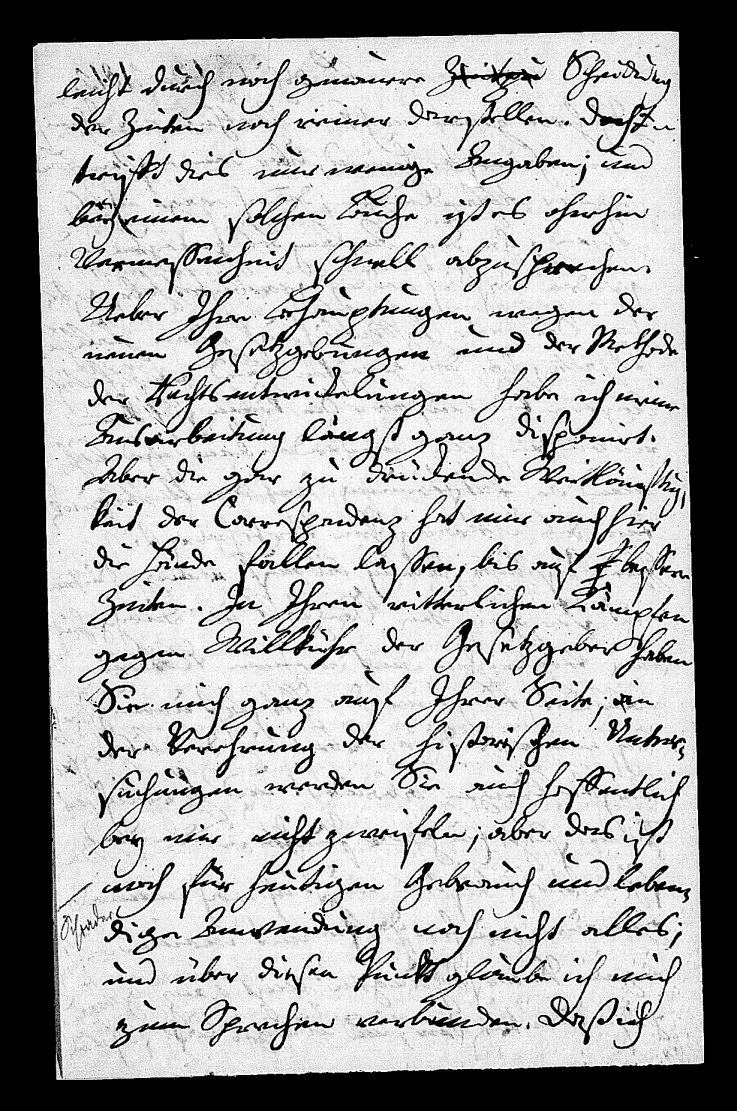 leicht durch noch genauere Scheidung
der Zeiten noch reiner darstellen. Doch
trifft dies nur wenige Angaben; und
bey einem solchen Buche ist es ohnehin
Vermessenheit schnell abzusprechen.
Ueber Ihre Behauptungen wegen der
neuen Gesetzgebungen und der Methode
der Rechtsentwickelungen habe ich meine
Ausarbeitung längst ganz disponirt.
Aber die gar zu drückende
keit der Correspondenz hat mir auch hier
die Hände fallen lassen, bis auf bessere
Zeiten. In Ihren ritterlichen Kämpfen
gegen Willkühr der Gesetzgeber haben
Sie mich ganz auf Ihrer Seite; an
der Verehrung der historischen Unter-
suchungen werden Sie auch hoffentlich
bey mir nicht zweifeln; aber das ist
noch für heutigen Gebrauch und leben-
dige Anwendung noch nicht alles;
Schrader
und über diesen Punkt glaube ich mich
zum Sprechen verbunden. Daß ich